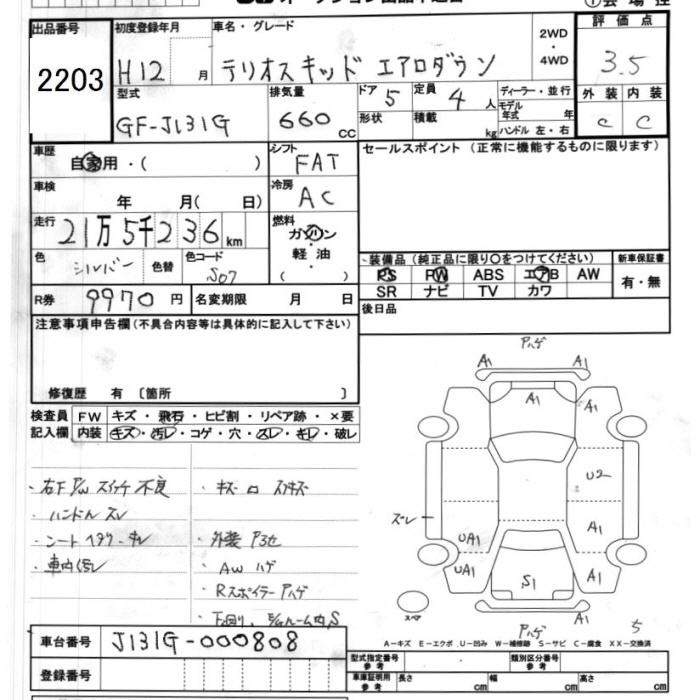 出品番号 2203
初度登録年月 H12 月
車名・グレード テリオスキッド エアロダウン
2WD・4WD
評価点 3.5
型式 GF-J131G
排気量 660 cc
ドア 5
定員 4 人
形状
積載 kg
ディーラー・並行
モデル年式 年
ハンドル 左・右
外装 内装
C C
車歴 自家用・( )
シフト FAT
セールスポイント(正常に機能するものに限ります)
車検 年 月( 日)
冷房 AC
走行 21万5千236 km
燃料 ガソリン・軽油 ( )
色 シルバー 色替
色コード S07
装備品(純正品に限り○をつけてください)
新車保証書
PS PW ABS エアB AW
有・無
SR ナビ TV カワ
R券 9970 円
名変期限 月 日
後日品
注意事項申告欄(不具合内容等は具体的に記入して下さい)
修復歴 有 〔箇所 〕
検査員記入欄
FW キズ・飛石・ヒビ割・リペア跡・×要
内装 キズ・汚レ・コゲ・穴・スレ・キレ・破レ
・右下P/Wスイッチ不良
・ハンドルスレ
・車内汚レ
・外装
・AWハゲ
・Rスポイラー Pハゲ
Pハゲ
A1 A1
A1 A1
U2
ズレ
UA1 A1
UA1 S1 A1
A1
Pハゲ
スペア
5
A-キズ E-エクボ U-凹み W-補修跡 S-サビ C-腐食 XX-交換済
車台番号 J131G-000808
登録番号
型式指定番号 参考
類別区分番号 参考
車庫証明用 参考 長さ cm 幅 cm 高さ cm